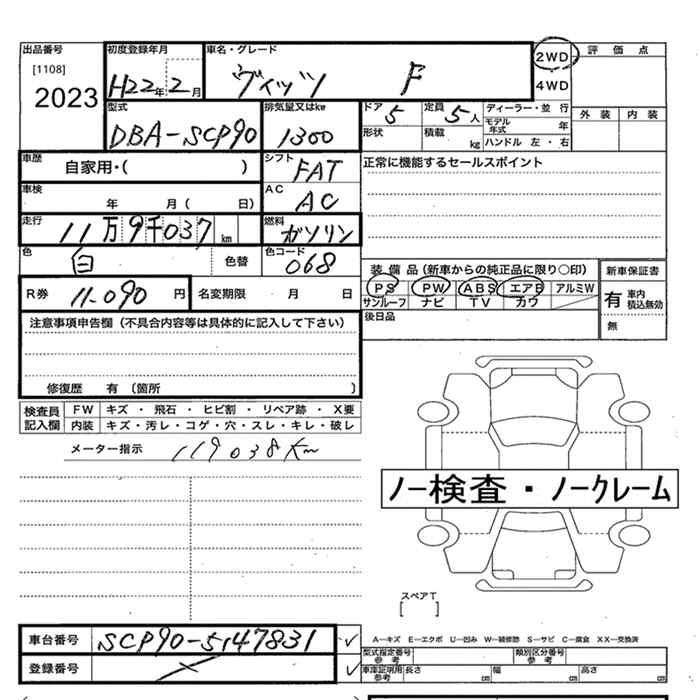 出品番号 初度登録年月 車名・グレード 2WD 評 価 点
[1108] 2023 H22年 2月 ヴィッツ F 4WD
型式 排気量又はkw ドア 5 定員 5人 ディーラー・並 行 外 装 内 装
DBA-SCP90 1300 形状 積載 kg モデル年式 年
ハンドル 左・右
車歴 自家用・( ) シフト FAT 正常に機能するセールスポイント
車検 年 月( 日) AC AC
走行 11万9千037km 燃料 ガソリン
色 白 色替 色コード 068 装 備 品 (新車からの純正品に限り○印) 新車保証書
R券 11-090 円 名変期限 月 日 PS PW ABS エアB アルミW 有 車内積込無効
サンルーフ ナビ TV カワ
注意事項申告欄 (不具合内容等は具体的に記入して下さい) 後日品 無
修復歴 有 (箇所 )
検査員記入欄 FW キズ ・ 飛石 ・ ヒビ割 ・ リペア跡 ・ X要
内装 キズ・汚レ・コゲ・穴・スレ・キレ・破レ
メーター指示 119038Km
ノー検査・ノークレーム
スペアT
[ ]
車台番号 SCP90-5147831 ✓ A―キズ E―エクボ U―凹み W―補修跡 S―サビ C―腐食 XX―交換済
型式指定番号 参考 類別区分番号 参考
登録番号 ✓ 車庫証明用 参考 長さ cm 幅 cm 高さ cm